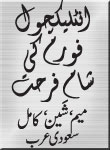 انٹلیکچول
فورم کی
شام فرحت
میم، شین، کامل
سعودی عرب